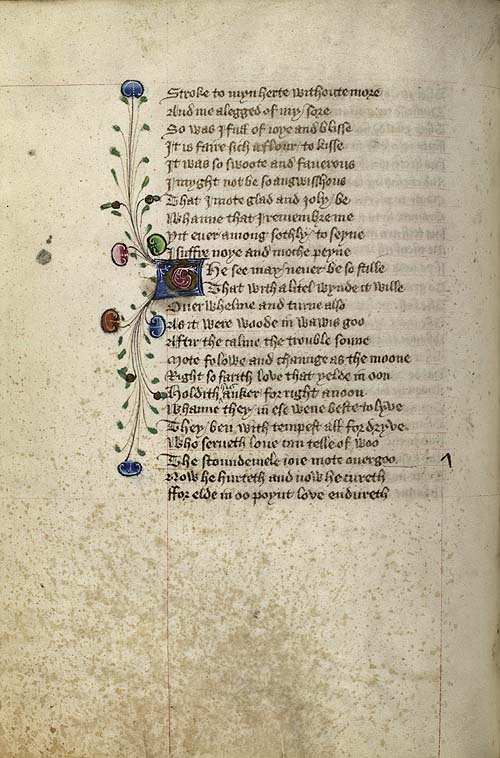 Stroke to myn herte withoute more
And me alegged of my sore
So was I full of ioye and blisse
It is faire sich a flour to kisse
It was so swoote and sauerous
I myght not be so angwisshous
That I mote glad and ioly be
Whanne that I remembre me
Yit euer among sothly to seyne
I suffre noye and moche peyne
The see may neuer be so stille
That with a litel wynde it wille
Ouerwhelme and turne also
As it were woode in wawis goo
Aftir the calme the trouble soune
Mote folowe and chaunge as the moone
Right so farith love that yelde in oon
Holdith his anker for right anoon
Whanne they in ese wene beste to lyve
They ben with tempest all fordryve
Who serueth loue can telle of woo
The stoundemele ioie mote ouergoo
Now he hurteth and now he cureth
ffor elde in oo poynt love endureth